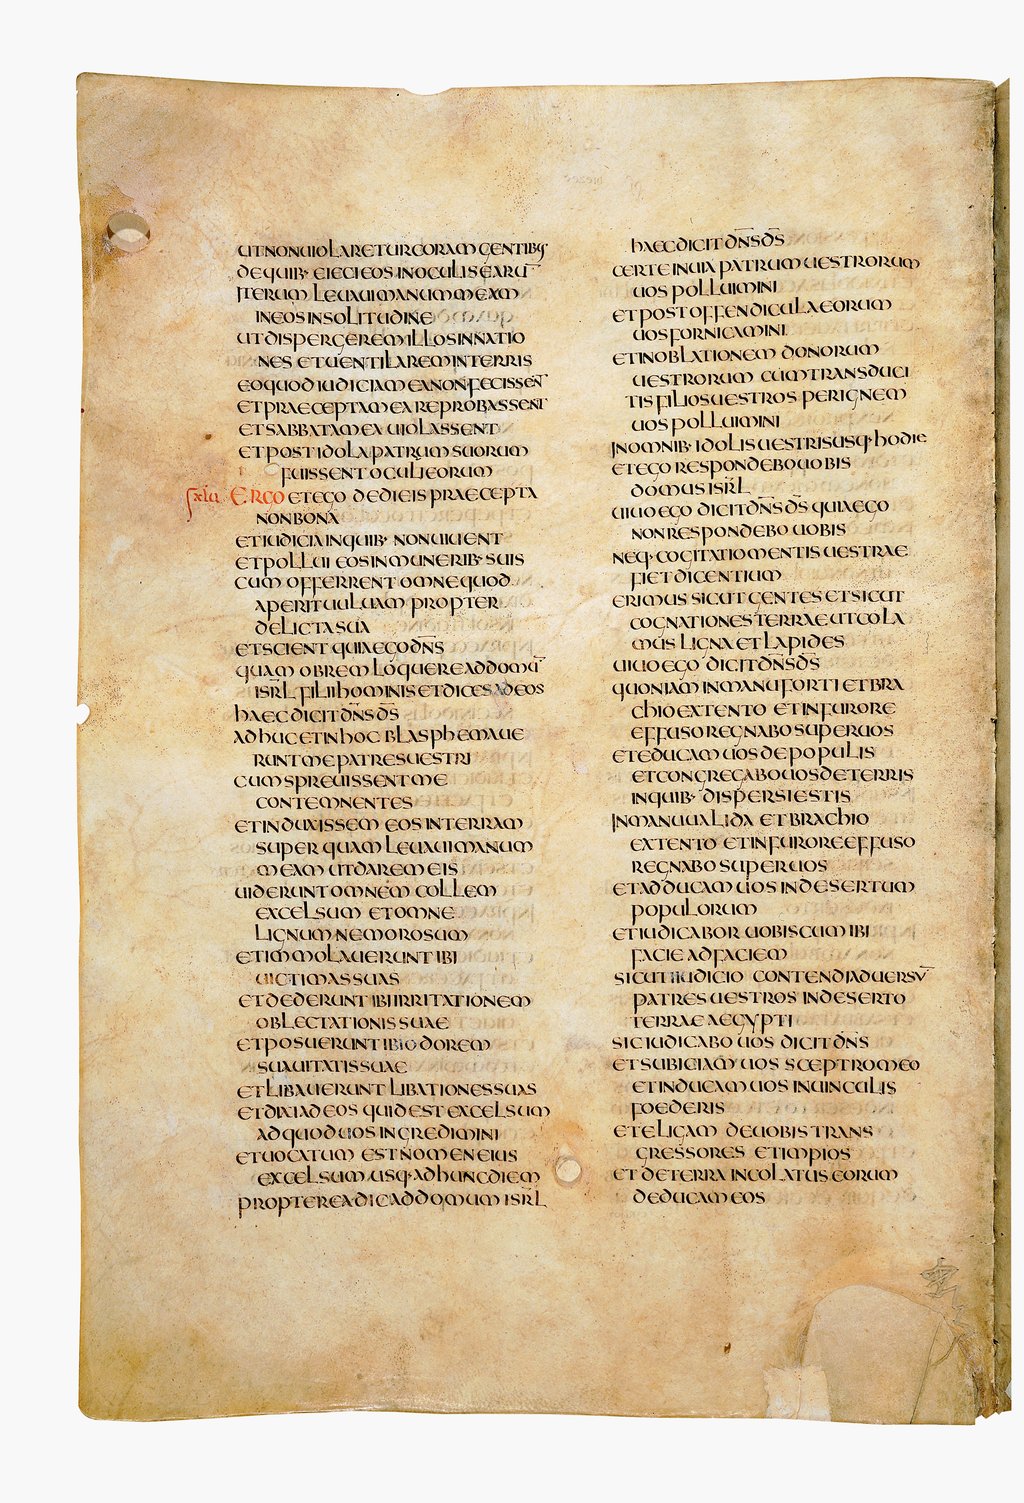 UT NON UIOLARETUR CORAM GENTIB·
DE QUIB· EIECI EOS IN OCULIS EARŪ
ITERUM LEUAUI MANUM MEAM
IN EOS IN SOLITUDINE
UT DISPERGEREM ILLOS IN NATIO
NES ET UENTILAREM IN TERRIS
EO QUOD IUDICIA MEA NON FECISSENT
ET PRAECEPTA MEA REPROBASSENT
ET SABBATA MEA UIOLASSENT
ET POST IDOLA PATRUM SUORUM
FUISSENT OCULI EORUM
XLU ERGO ET EGO DEDI EIS PRAECEPTA
NON BONA
ET IUDICIA IN QUIB· NON UIUENT
ET POLLUI EOS IN MUNERIB· SUIS
CUM OFFERRENT OMNE QUOD
APERIT UULUAM PROPTER
DELICTA SUA
ET SCIENT QUIA EGO DN̄S
QUAM OB REM LOQUERE AD DOMŪ
ISRL̄ FILII HOMINIS ET DICES AD EOS
HAEC DICIT DN̄S D̄S
ADHUC ET IN HOC BLASPHEMAUE
RUNT ME PATRES UESTRI
CUM SPREUISSENT ME
CONTEMNENTES
ET INDUXISSEM EOS IN TERRAM
SUPER QUAM LEUAUI MANUM
MEAM UT DAREM EIS
UIDERUNT OMNEM COLLEM
EXCELSUM ET OMNE
LIGNUM NEMOROSUM
ET IMMOLAUERUNT IBI
UICTIMAS SUAS
ET DEDERUNT IBI IRRITATIONEM
OBLECTATIONIS SUAE
ET POSUERUNT IBI ODOREM
SUAUITATIS SUAE
ET LIBAUERUNT LIBATIONES SUAS
ET DIXI AD EOS QUID EST EXCELSUM
AD QUOD UOS INGREDIMINI
ET UOCATUM EST NOMEN EIUS
EXCELSUM USQ· AD HUNC DIEM
PROPTEREA DIC AD DOMUM ISRL̄
HAEC DICIT DN̄S D̄S
CERTE IN UIA PATRUM UESTRORUM
UOS POLLUIMINI
ET POST OFFENDICULA EORUM
UOS FORNICAMINI
ET IN OBLATIONEM DONORUM
UESTRORUM CUM TRANSDUCI
TIS FILIOS UESTROS PER IGNEM
UOS POLLUIMINI
IN OMNIB· IDOLIS UESTRIS USQ· HODIE
ET EGO RESPONDEBO UOBIS
DOMUS ISRL̄
UIUO EGO DICIT DN̄S D̄S QUIA EGO
NON RESPONDEBO UOBIS
NEQ· COGITATIO MENTIS UESTRAE
FIET DICENTIUM
ERIMUS SICUT GENTES ET SICUT
COGNATIONES TERRAE UT COLA
MUS LIGNA ET LAPIDES
UIUO EGO DICIT DN̄S D̄S
QUONIAM IN MANU FORTI ET BRA
CHIO EXTENTO ET IN FURORE
EFFUSO REGNABO SUPER UOS
ET EDUCAM UOS DE POPULIS
ET CONGREGABO UOS DE TERRIS
IN QUIB· DISPERSI ESTIS
IN MANU UALIDA ET BRACHIO
EXTENTO ET IN FURORE EFFUSO
REGNABO SUPER UOS
ET ADDUCAM UOS IN DESERTUM
POPULORUM
ET IUDICABOR UOBISCUM IBI
FACIE AD FACIEM
SICUT IUDICIO CONTENDI ADUERSŪ
PATRES UESTROS IN DESERTO
TERRAE AEGYPTI
SIC IUDICABO UOS DICIT DN̄S
ET SUBICIAM UOS SCEPTRO MEO
ET INDUCAM UOS IN UINCULIS
FOEDERIS
ET ELIGAM DE UOBIS TRANS
GRESSORES ET IMPIOS
ET DE TERRA INCOLATUS EORUM
DEDUCAM EOS